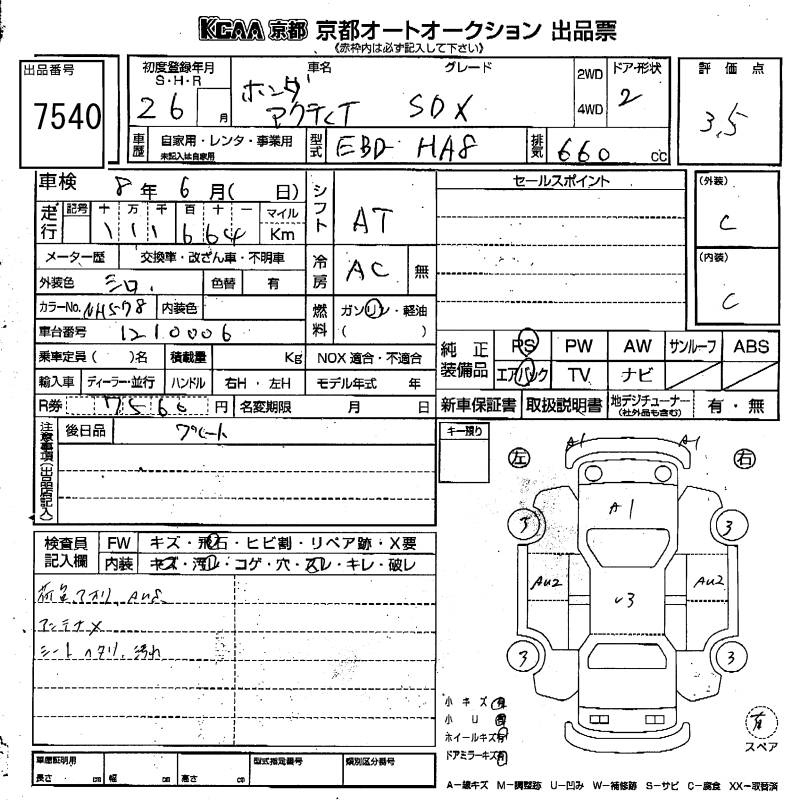 KCAA 京都 京都オートオークション 出品票
《赤枠内は必ず記入して下さい》
出品番号
7540
初度登録年月
S・H・R
26 月
車名
グレード
ホンダ
アクティT SDX
2WD
4WD
ドア・形状
2
評価点
3.5
車歴
自家用・レンタ・事業用
未記入は自家用
型式
EBD-HA8
排気
660 cc
車検 8年 6月( 日)
シフト
AT
走行
記号 十 万 千 百 十 一 マイル
Km
111664
メーター歴 交換車・改ざん車・不明車
冷房
AC 無
外装色 シロ 色替 有
カラーNo. NH578 内装色
燃料
ガソリン・軽油
( )
車台番号 1210006
乗車定員( )名 積載量 Kg NOX 適合・不適合
輸入車 ディーラー・並行 ハンドル 右H・左H モデル年式 年
R券 7560 円 名変期限 月 日
セールスポイント
(外装)
C
(内装)
C
純正装備品
PS PW AW サンルーフ ABS
エアバック TV ナビ
新車保証書 取扱説明書 地デジチューナー(社外品も含む) 有・無
注意事項(出品店記入)
後日品 プレート
キー残り
左
右
A1 A1
A1
3 3
AU2 AU2
U3
3 3
検査員記入欄
FW キズ・飛石・ヒビ割・リペア跡・X要
内装 キズ・汚レ・コゲ・穴・スレ・キレ・破レ
荷台アオリ AU8
アンテナX
シートヘタリ、汚れ
小キズ 有
小U 有
ホイールキズ 有
ドアミラーキズ 有
有
スペア
車庫証明用
長さ cm 幅 cm 高さ cm
型式指定番号
類別区分番号
A−線キズ M−調整跡 U−凹み W−補修跡 S−サビ C−腐食 XX−取替済